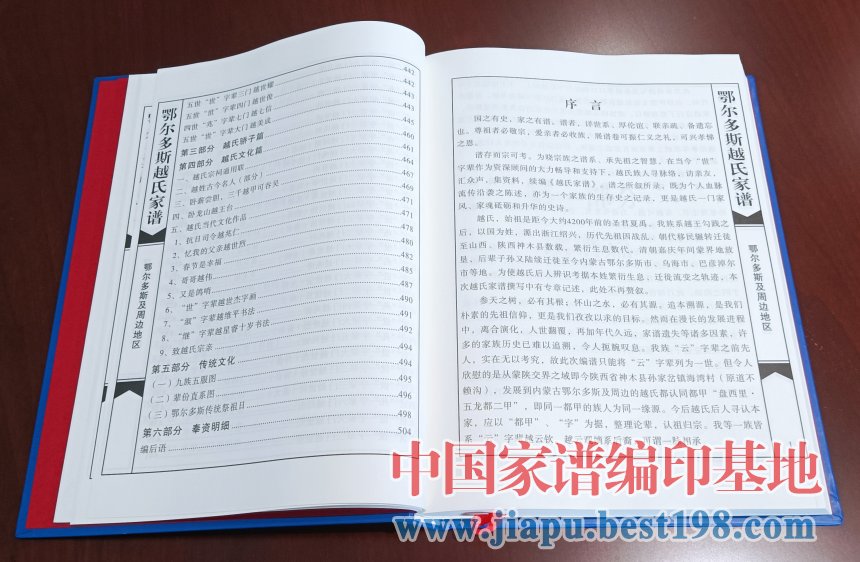 鄂尔多斯越氏家谱
鄂尔多斯及周边地区
442
五世“世”字辈三门越世耀 442
五世“凯”字辈四门越世俊 443
四世“兆”字辈七门越七信 443
五世“世”字辈大门越美成 445
第三部分 越氏骄子篇
第四部分 越氏文化篇
一、越氏宗祠通用联
二、越姓古今名人（部分）
三、卧薪尝胆，三千越甲可吞吴 469
四、卧龙山越王台 471
五、越氏当代文化作品 471
1、抗日司令越兆仁 478
2、忆我的父亲越世烈 480
3、春节是幸福 482
4、哥哥越伟 485
5、又是鸽哨 487
6、“世”字辈越世杰字画 490
7、“淑”字辈越维平书法 491
8、“继”字辈越星睿十岁书法 492
9、致越氏宗亲 494
第五部分 传统文化 494
（一）九族五服图 494
（二）辈份直系图 495
（三）鄂尔多斯传统祭祖日 496
第六部分 奉资明细 498
编后语 504
序言
国之有史，家之有谱。谱者，详世系、厚伦谊、联亲疏、备遗忘
也。尊祖者必敬宗，爱亲者必收族，展谱卷可振仁义之礼，可兴孝悌
之恩。
谱存而宗可考。为烧宗族之谱系、承先祖之智慧，在当今“世”
字辈作为资深顾问的大力畅导和支持下，越氏族人寻脉络，访亲友，
汇众声，集资料，续编《越氏家谱》。谱之所叙所录，既为个人血脉
流传沿袭之陈述，亦为一个家族的生存史之记录，更是越氏一门家
风、家魂砥砺和升华的史诗。
越氏，始祖是距今大约4200年前的圣君夏禹。我族系越王勾践之
后，以国为姓，源出浙江绍兴，历代先祖因战乱、朝代移民辗转迁徙
至山西、陕西神木县数载，繁衍生息数代，清朝嘉庆年间蒙界地放
垦、后辈子孙又陆续迁徙至今内蒙古鄂尔多斯市、乌海市、巴彦淖尔
市等地。为使越氏后人辨识考据本姓繁衍生息、迁徙流变之轨迹，本
次越氏家谱撰写中有专章记述，此处不再赘叙。
参天之树，必有其根；怀山之水，必有其源。追本溯源，是我们
朴素的先祖信仰，更是我们孜孜以求的目标。然而在漫长的发展进程
中，离合演化，人世翻覆，再加年代久远，家谱遗失等诸多因素，许
多的家族历史已难以追溯，令人扼腕叹息。我族“云”字辈之前先
人，实在无以考究，故此次编谱只能将“云”字辈列为一世。但令人
欣慰的是从蒙陕交界之域即今陕西省神木县孙家岔镇海湾村（原道不
赖沟），发展到内蒙古鄂尔多斯及周边的越氏都认同都甲“盘西里·
五龙都二甲”，即同一都甲的族人为同一缘源。今后越氏后人寻认本
家，应以“都甲”、“字”为据，整理论辈，认祖归宗。我等一族皆
系“云”字辈越云钦
1
鄂尔多斯越氏家谱
鄂尔多斯及周边地区
中国家谱编印基地
www.jiapu.best198.com